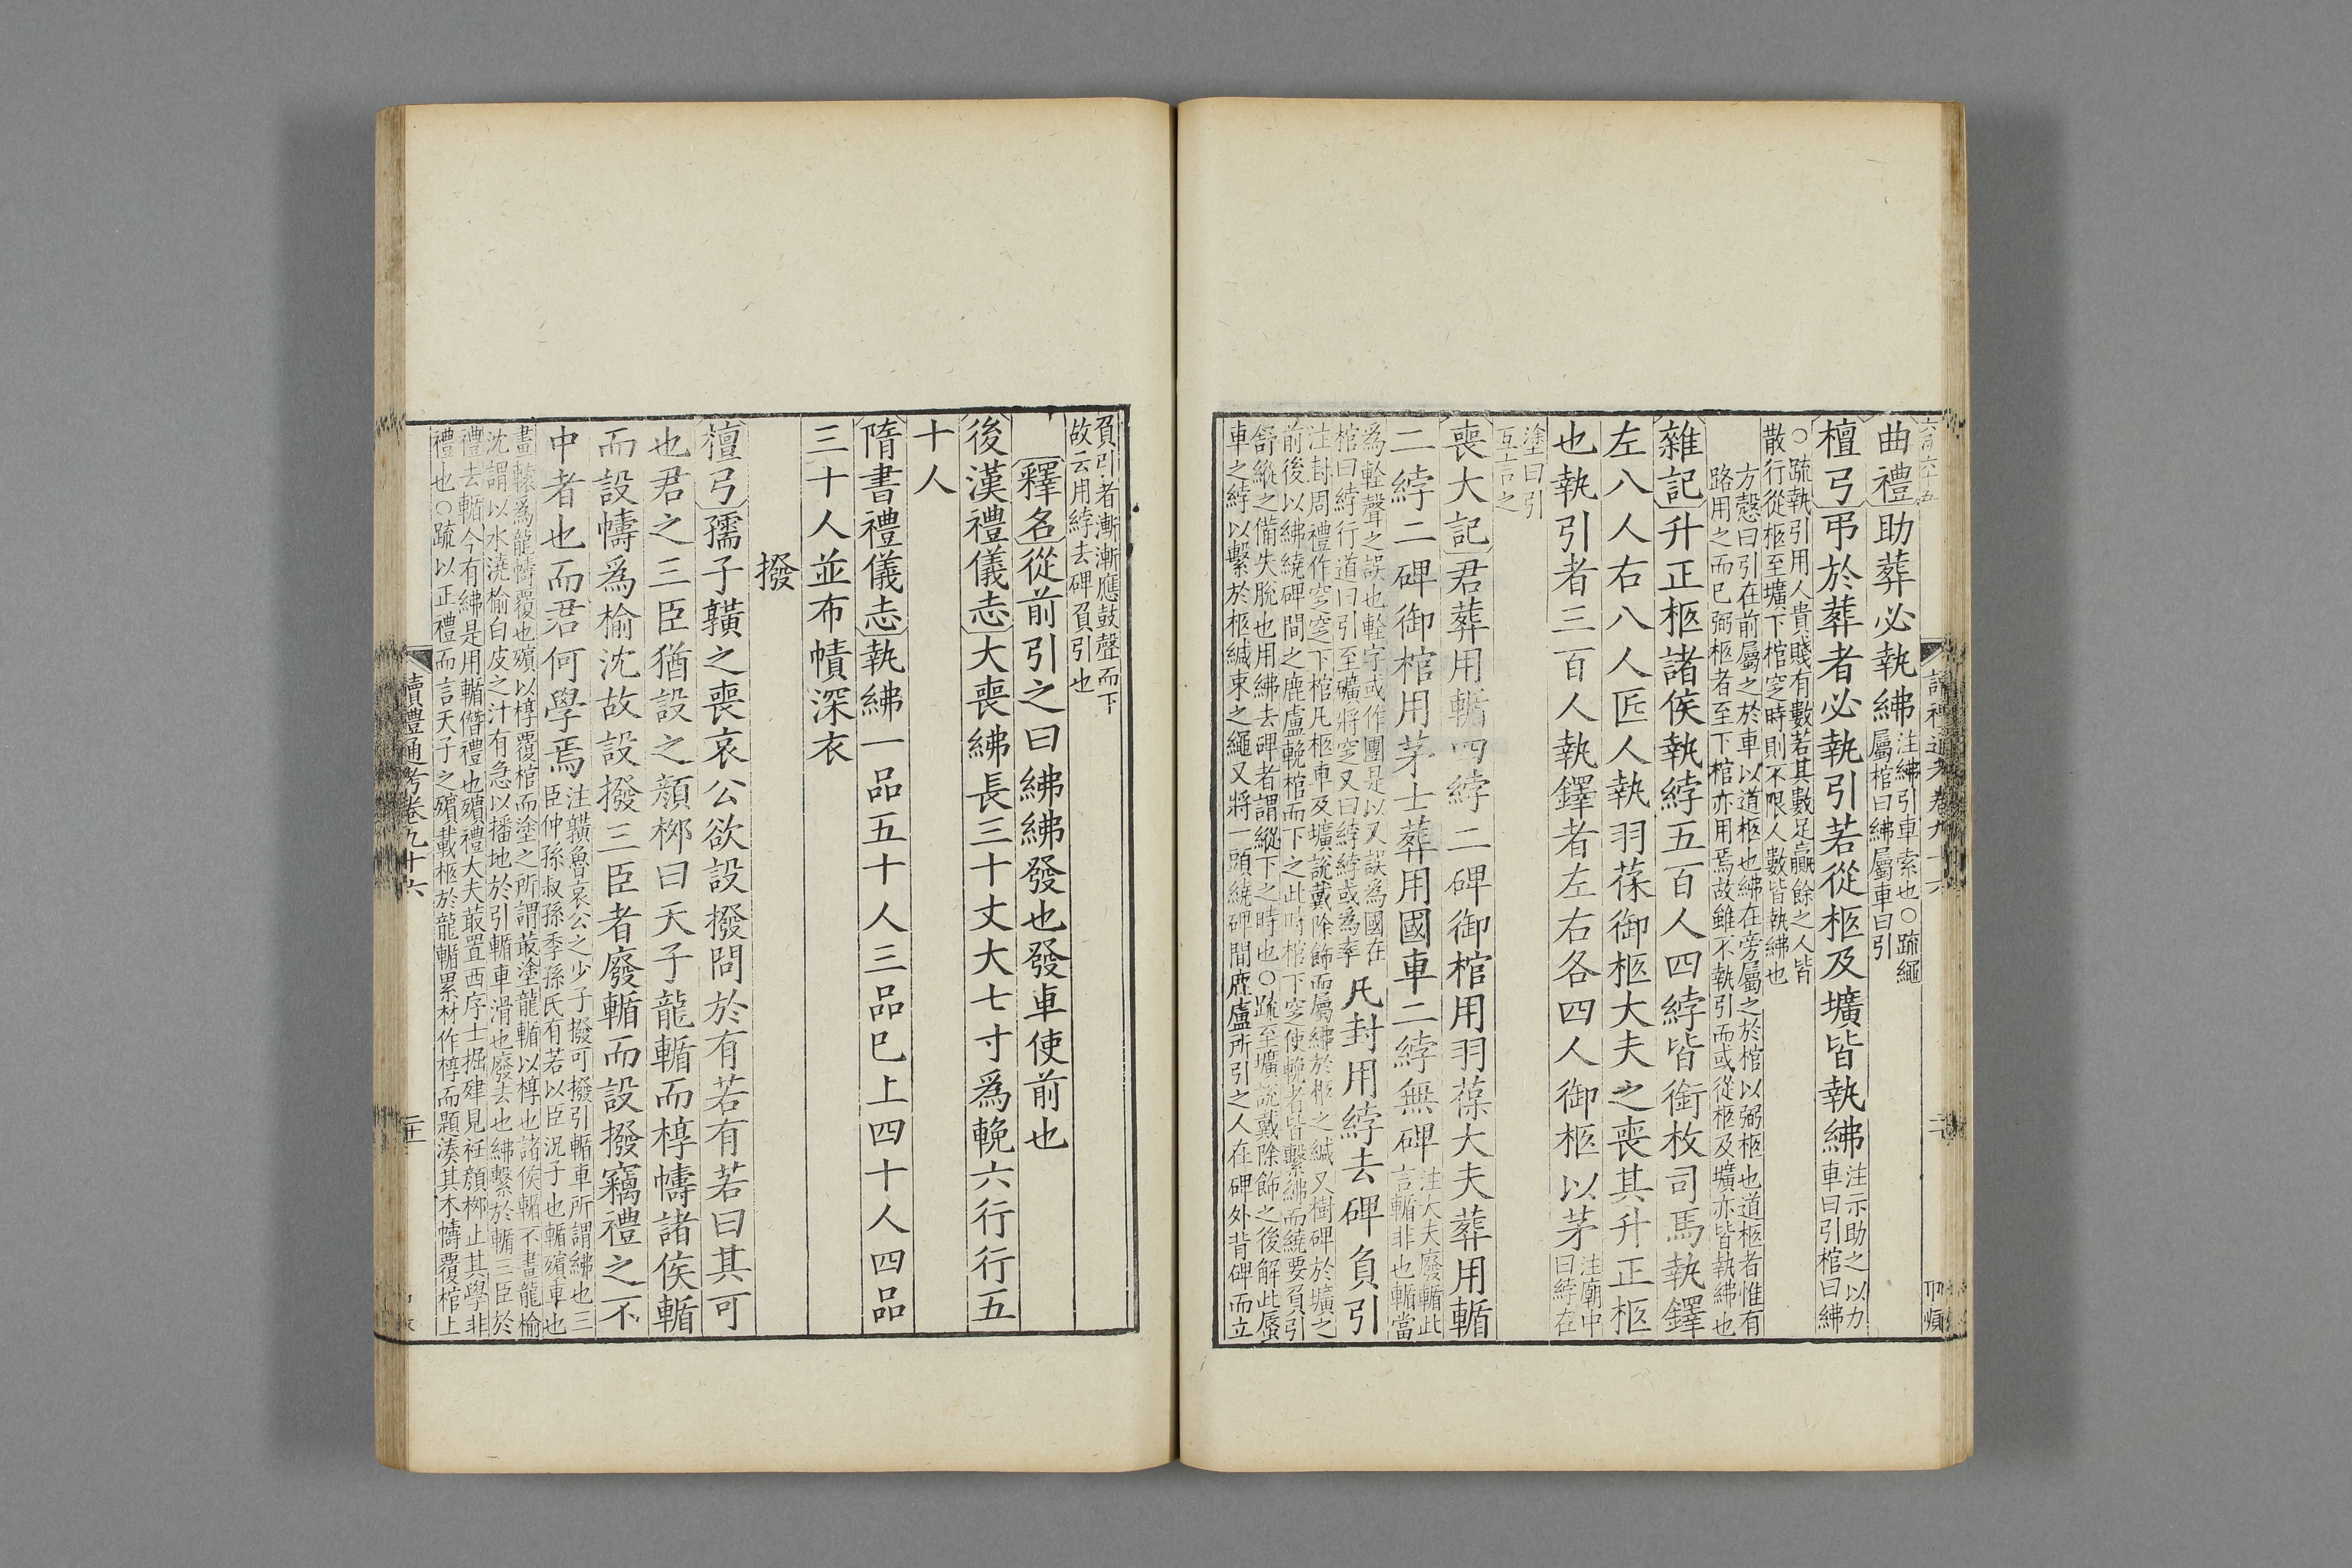 曲禮助葬必執紼注紼引車索也○疏繩
屬棺曰紼屬車曰引
檀弓弔於葬者必執引若從柩及壙皆執紼注示助之以力
車曰引棺曰紼
○疏執引用人貴賤有數若其數足羸餘之人皆
散行從柩至壙下棺窆時則不限人數皆執紼也
方慤曰引在前屬之於車以道柩也紼在旁屬之於棺以弼柩也道柩者惟有
路用之而已弼柩者至下棺亦用焉故雖不執引而或從柩及壙亦皆執紼也
雜記升正柩諸侯執綍五百人四綍皆銜枚司馬執鐸
左八人右八人匠人執羽葆御柩大夫之喪其升正柩
也執引者三百人執鐸者左右各四人御柩以茅注廟中
曰綍在
塗曰引
互言之
喪大記君葬用輴四綍二碑御棺用羽葆大夫葬用輴
二綍二碑御棺用茅士葬用國車二綍無碑注大夫廢輴此
言輴非也輴當
為輇聲之誤也輇字或作團是以又誤為國在
棺曰綍行道曰引至壙將窆又曰綍綍或為率
凡封用綍去碑負引
注封周禮作窆窆下棺凡柩車及壙說載除飾而屬紼於柩之緘又樹碑於壙之
前後以紼繞碑間之鹿盧輓棺而下之此時棺下窆使輓者皆繫紼而繞要負引
舒縱之備失脫也用紼去碑者謂縱下之時也○疏至壙說載除飾之後解此蜃
車之綍以繫於柩緘束之繩又將一頭繞碑間鹿盧所引之人在碑外背碑而立
負引者漸漸應鼓聲而下
故云用綍去碑負引也
釋名從前引之曰紼紼發也發車使前也
後漢禮儀志大喪紼長三十丈大七寸爲輓六行行五
十人
隋書禮儀志執紼一品五十人三品已上四十人四品
三十人並布幘深衣
撥
檀弓孺子䵍之喪哀公欲設撥問於有若有若曰其可
也君之三臣猶設之顏柳曰天子龍輴而椁幬諸侯輴
而設幬爲榆沈故設撥三臣者廢輴而設撥竊禮之不
中者也而君何學焉注䵍魯哀公之少子撥可撥引輴車所謂紼也三
臣仲孫叔孫季孫氏有若以臣況子也輴殯車也
畫轅爲龍幬覆也殯以椁覆棺而塗之所謂菆塗龍輴以椁也諸侯輴不畫龍榆
沈謂以水澆榆白皮之汁有急以播地於引輴車滑也廢去也紼繫於輴三臣於
禮去輴今有紼是用輴僭禮也殯禮大夫菆置西序士掘肂見衽顏柳止其學非
禮也○疏以正禮而言天子之殯載柩於龍輴累材作椁而題湊其木幬覆棺上
讀禮通考卷九十六